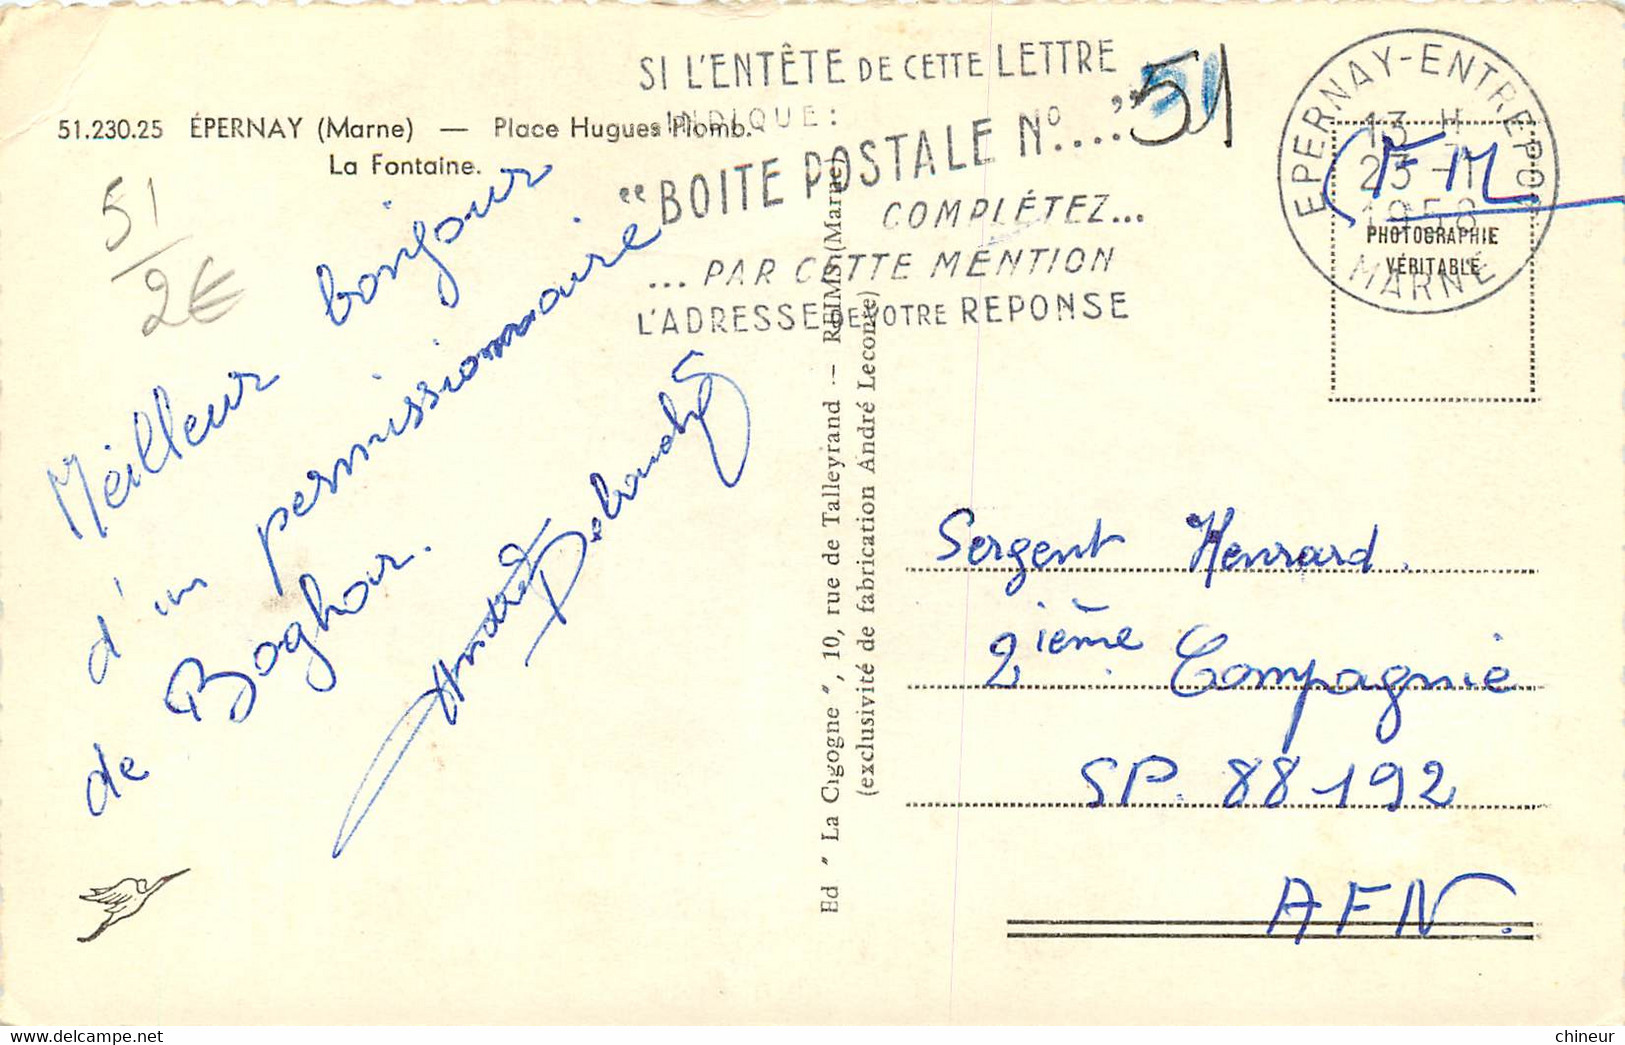 51.230.25 ÉPERNAY (Marne) — Place Hugues Plomb.
La Fontaine.
51
2€
Meilleur bonjour
d'un permissionnaire
de Boghar.
SI L'ENTÊTE DE CETTE LETTRE
INDIQUE:
"BOITE POSTALE N°...."
COMPLÉTEZ...
...PAR CETTE MENTION
L'ADRESSE DE VOTRE REPONSE
51
51
EPERNAY-ENTREPOT
13 H
23 -11
1958
MARNE
FM
PHOTOGRAPHIE
VÉRITABLE
Ed " La Cigogne ", 10, rue de Talleyrand — REIMS (Marne)
(exclusivité de fabrication André Leconte)
Sergent Henrard.
2ième Compagnie
SP. 88192
AFN.
chineur
delcampe.net